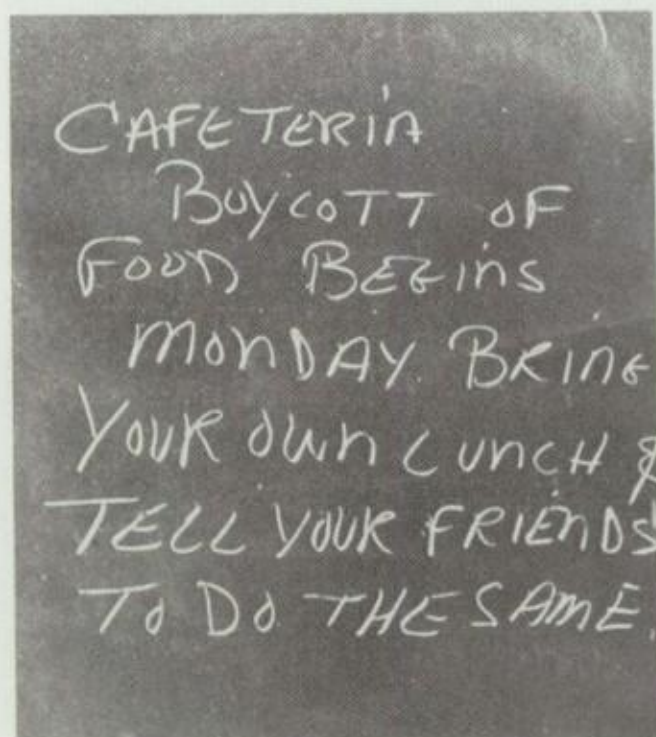 CAFETERiA
BOYCOTT OF
FOOD BEGiNS
MONDAY. BRiNG
YOUR OWN LUNCH &
TELL YOUR FRiENDS
TO DO THE SAME.